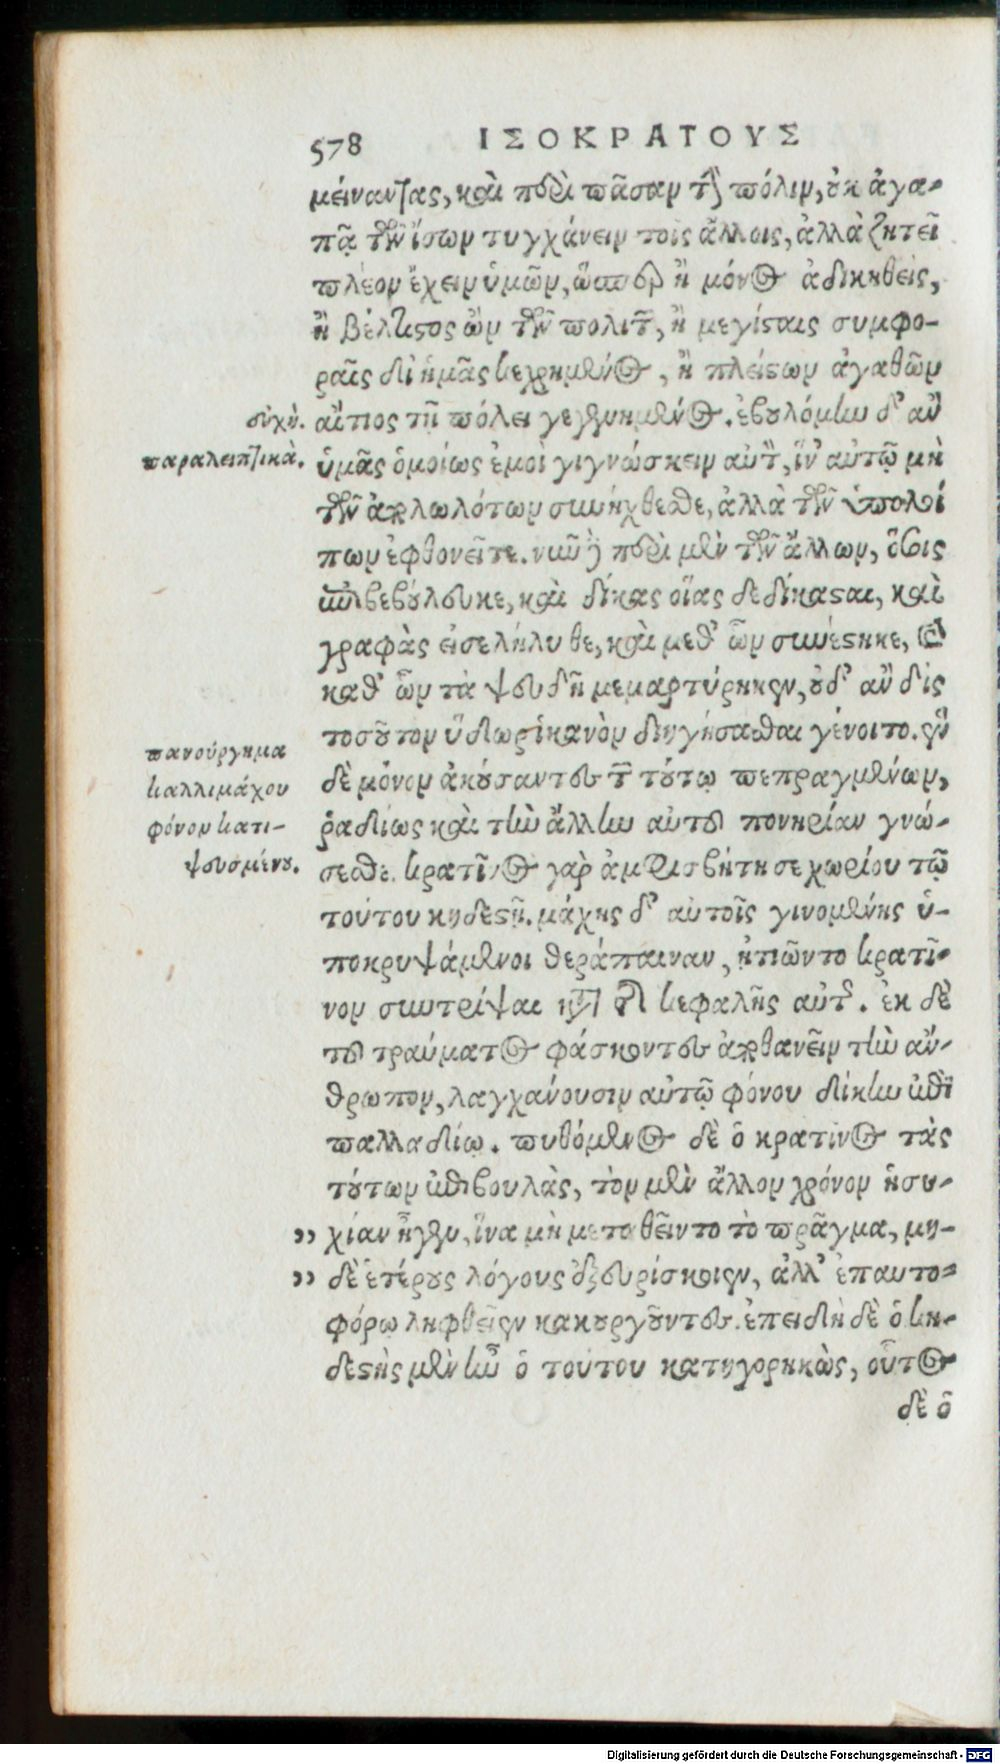 578 ΙΣΟΚΡΑΤΟΥΣ
μείναντας, καὶ περὶ πᾶσαν τὴν πόλιν, οὐκ ἀγα-
πᾷ τῶν ἴσων τυγχάνειν τοῖς ἄλλοις, ἀλλὰ ζητεῖ
πλέον ἔχειν ὑμῶν, ὥσπερ ἢ μόνος ἀδικηθεὶς,
ἢ βέλτιστος ὢν τῶν πολιτῶν, ἢ μεγίσταις συμφο-
ραῖς δι' ἡμᾶς κεχρημένος, ἢ πλείστων ἀγαθῶν
αἴτιος τῇ πόλει γεγενημένος. ἐβουλόμην δ' ἂν
ὑμᾶς ὁμοίως ἐμοὶ γιγνώσκειν αὐτὸν, ἵν' αὐτῷ μὴ
τῶν ἀπολωλότων συνήχθεσθε, ἀλλὰ τῶν ὑπολοί
πων ἐφθονεῖτε. νῦν δὲ περὶ μὲν τῶν ἄλλων, ὅσοις
ἐπιβεβούλευκε, καὶ δίκας οἵας δεδίκασται, καὶ
γραφὰς εἰσελήλυθε, καὶ μεθ' ὧν συνέστηκε, καὶ
καθ' ὧν τὰ ψευδῆ μεμαρτύρηκεν, οὐδ' ἂν δὶς
τοσοῦτον ὕδωρ ἱκανὸν διηγήσασθαι γένοιτο. ἓν
δὲ μόνον ἀκούσαντες τῶν τούτῳ πεπραγμένων,
ῥᾳδίως καὶ τὴν ἄλλην αὐτοῦ πονηρίαν γνώ-
σεσθε. κρατῖνος γὰρ ἀμφισβήτησε χωρίου τῷ
τούτου κηδεστῇ. μάχης δ' αὐτοῖς γινομένης ὑ-
ποκρυψάμενοι θεράπαιναν, ᾐτιῶντο κρατῖ-
νον συντρίψαι τῆς κεφαλῆς αὐτῆς. ἐκ δὲ
τοῦ τραύματος φάσκοντες ἀποθανεῖν τὴν ἄν-
θρωπον, λαγχάνουσιν αὐτῷ φόνου δίκην ἐπὶ
παλλαδίῳ. πυθόμενος δὲ ὁ κρατῖνος τὰς
τούτων ἐπιβουλὰς, τὸν μὲν ἄλλον χρόνον ἡσυ-
,, χίαν ἦγεν, ἵνα μὴ μεταθεῖντο τὸ πρᾶγμα, μη-
,, δὲ ἑτέρους λόγους ἐξευρίσκοιεν, ἀλλ' ἐπαυτο-
φόρῳ ληφθεῖεν κακουργοῦντες. ἐπειδὴ δὲ ὁ κη-
δεστὴς μὲν ἦν ὁ τούτου κατηγορηκὼς, οὗτος
δὲ ὁ
παραλειπτικά.
πανούργημα
καλλιμάχου
φόνον κατε-
ψευσμένου.
Digitalisierung gefördert durch die Deutsche Forschungsgemeinschaft - DFG